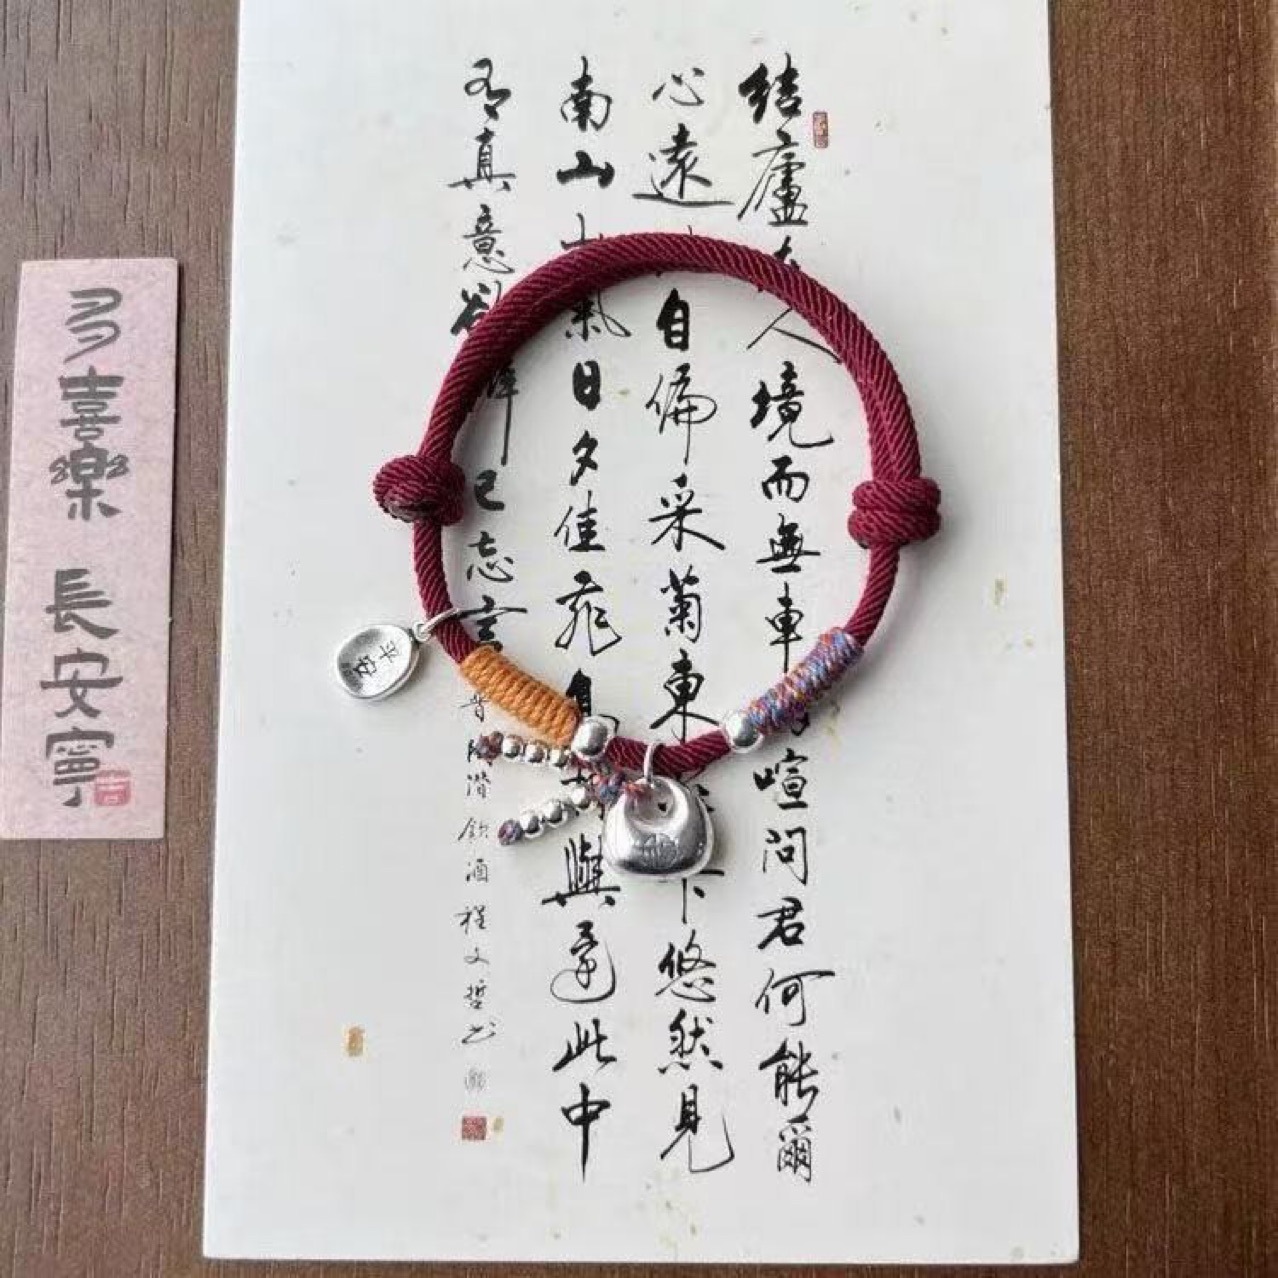 結廬在人境而無車馬喧問君何能爾
心遠自偏采菊東下悠然見
南山山氣日夕佳飛鳥與還此中
有真意欲辨已忘言
晉陶潛飲酒程文哲书
多喜樂 長安寧
平安